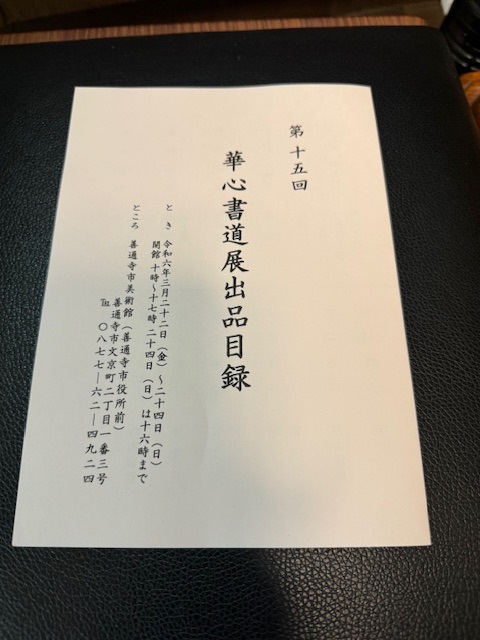 第十五回
華心書道展出品目録
とき 令和六年三月二十二日(金)~二十四日(日)
開館 十時~十七時 二十四日(日)は十六時まで
ところ 善通寺市美術館(善通寺市役所前)
善通寺市文京町二丁目一番三号
℡ 〇八七七―六二―四九二四